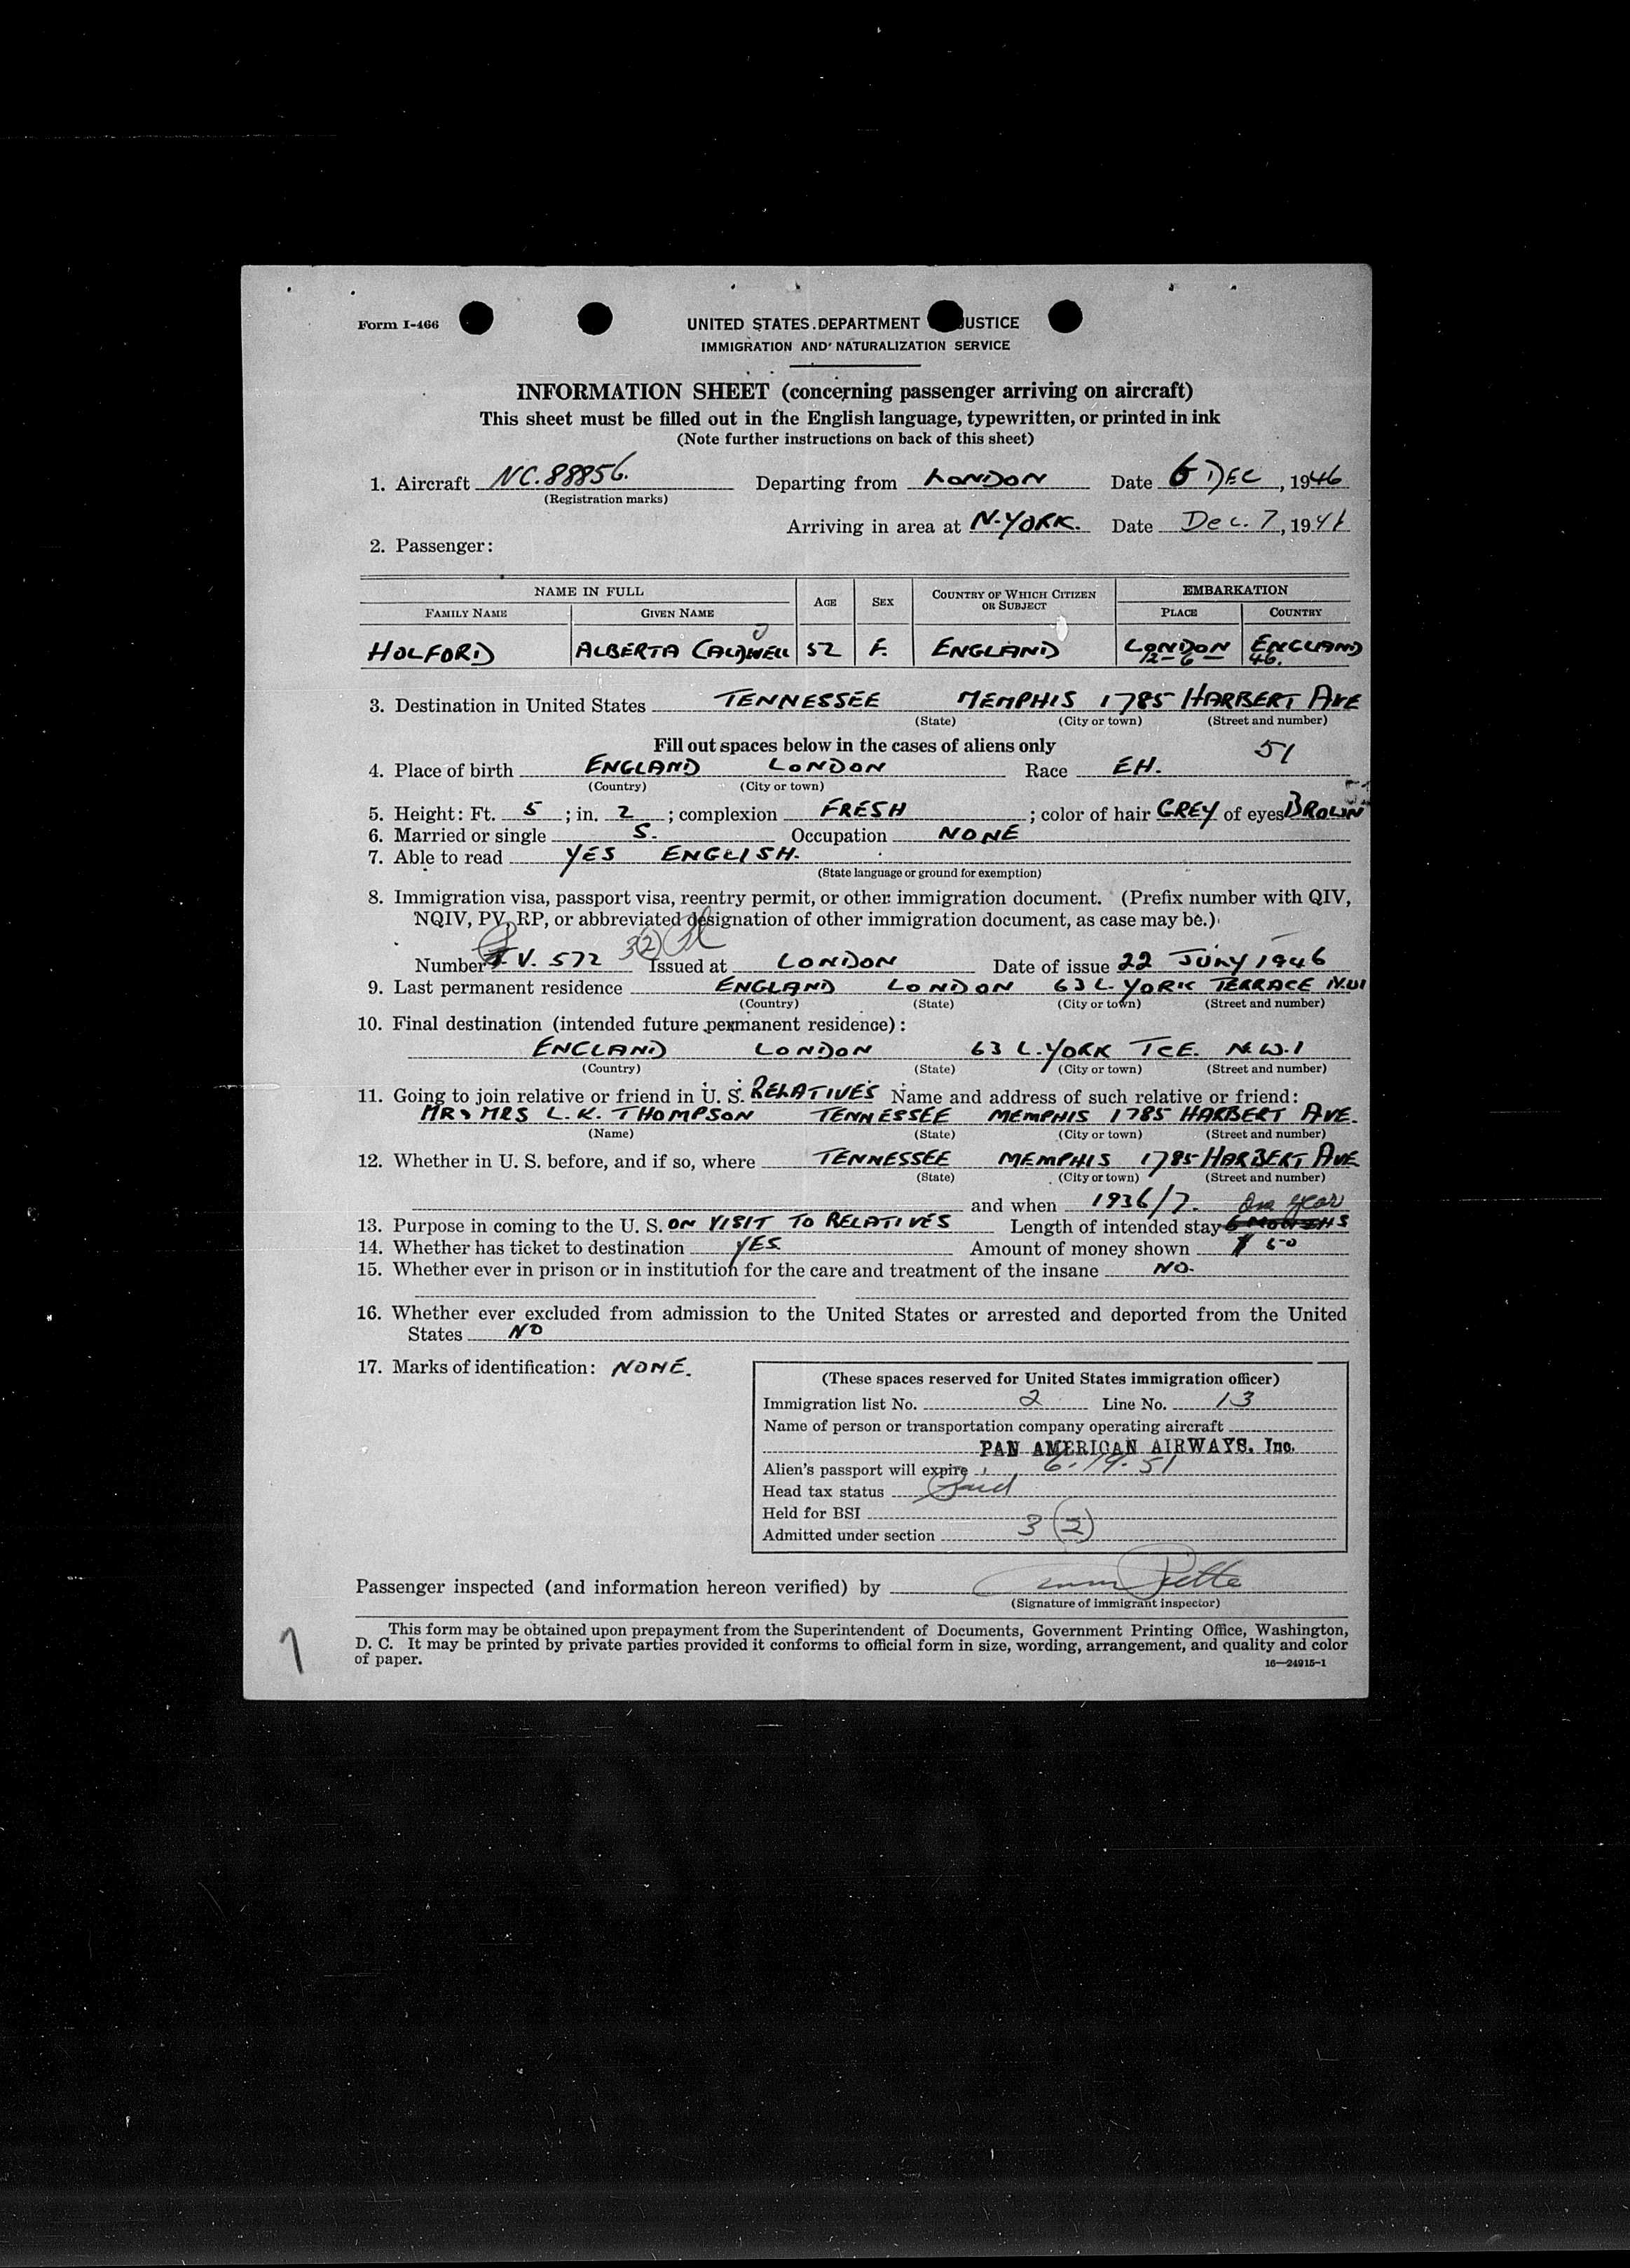 Form I-466
UNITED STATES DEPARTMENT JUSTICE
IMMIGRATION AND NATURALIZATION SERVICE
INFORMATION SHEET (concerning passenger arriving on aircraft)
This sheet must be filled out in the English language, typewritten, or printed in ink
(Note further instructions on back of this sheet)
1. Aircraft NC.88856. Departing from LONDON Date 6 DEC, 1946
(Registration marks)
Arriving in area at N-YORK. Date Dec. 7, 19
2. Passenger:
NAME IN FULL AGE SEX COUNTRY OF WHICH CITIZEN OR SUBJECT EMBARKATION
FAMILY NAME GIVEN NAME PLACE COUNTRY
HOLFORD ALBERTA CALDWELL 52 F. ENGLAND LONDON ENGLAND
12-6- 46.
3. Destination in United States TENNESSEE MEMPHIS 1785 HARBERT AVE
(State) (City or town) (Street and number)
Fill out spaces below in the cases of aliens only 51
4. Place of birth ENGLAND LONDON Race EH.
(Country) (City or town)
5. Height: Ft. 5; in. 2; complexion FRESH; color of hair GREY of eyes BROWN
6. Married or single S. Occupation NONE
7. Able to read YES ENGLISH.
(State language or ground for exemption)
8. Immigration visa, passport visa, reentry permit, or other immigration document. (Prefix number with QIV,
NQIV, PV, RP, or abbreviated designation of other immigration document, as case may be.)
3(2)
Number V. 572 Issued at LONDON Date of issue 22 1946
9. Last permanent residence ENGLAND LONDON 63 L. YORK TERRACE N.W1
(Country) (State) (City or town) (Street and number)
10. Final destination (intended future permanent residence):
ENGLAND LONDON 63 L. YORK TCE. N.W.1
(Country) (State) (City or town) (Street and number)
11. Going to join relative or friend in U. S. RELATIVES Name and address of such relative or friend:
MR & MRS L. K. THOMPSON TENNESSEE MEMPHIS 1785 HARBERT AVE.
(Name) (State) (City or town) (Street and number)
12. Whether in U. S. before, and if so, where TENNESSEE MEMPHIS 1785 HARBERT AVE
(State) (City or town) (Street and number)
and when 1936/7. One year
13. Purpose in coming to the U. S. ON VISIT TO RELATIVES Length of intended stay 6 MONTHS
14. Whether has ticket to destination YES Amount of money shown 60
15. Whether ever in prison or in institution for the care and treatment of the insane NO.
16. Whether ever excluded from admission to the United States or arrested and deported from the United
States NO
17. Marks of identification: NONE.
(These spaces reserved for United States immigration officer)
Immigration list No. 2 Line No. 13
Name of person or transportation company operating aircraft
PAN AMERICAN AIRWAYS, Inc.
Alien's passport will expire 6.19.51
Head tax status Paid
Held for BSI
Admitted under section 3(2)
Passenger inspected (and information hereon verified) by
(Signature of immigrant inspector)
This form may be obtained upon prepayment from the Superintendent of Documents, Government Printing Office, Washington,
D. C. It may be printed by private parties provided it conforms to official form in size, wording, arrangement, and quality and color
of paper. 16—24915-1